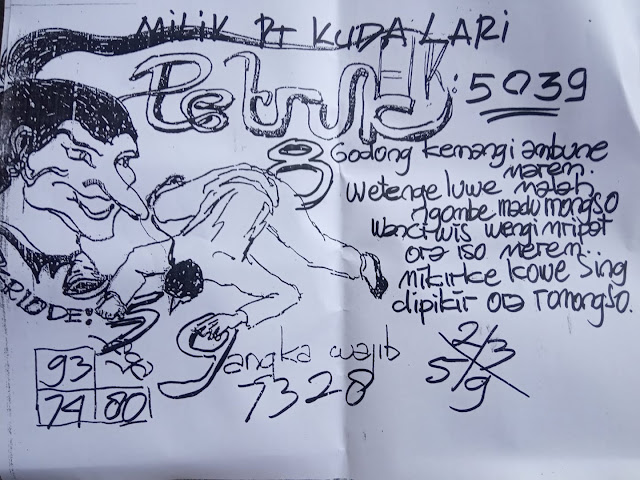 MILIK PT KUDA LARI
Petruk
EJK: 5039
Godong kemangi ambune
marem.
Wetenge luwe malah
ngombe madu mongso
Wanci wis wengi mripat
ora iso merem..
mikirke kowe sing
dipikir ora romongso.
PERIODE:
8
3
9
angka wajib
7328
93
74 80
2/3
5/9